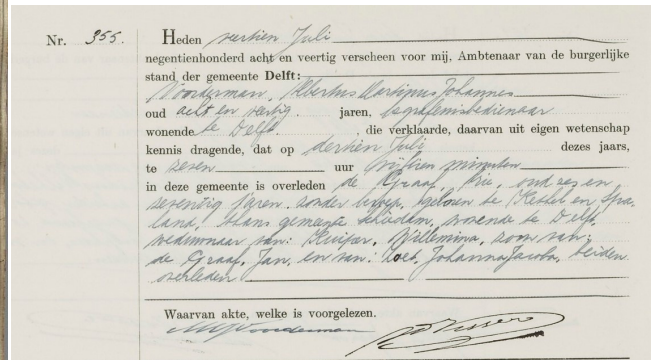 Nr. 355.
Heden veertien Juli
negentienhonderd acht en veertig verscheen voor mij, Ambtenaar van de burgerlijke
stand der gemeente Delft:
Noorderman, Albertus Martinus Johannes
oud acht en veertig jaren, begrafenisbedienaar
wonende te Delft, die verklaarde, daarvan uit eigen wetenschap
kennis dragende, dat op dertien Juli dezes jaars,
te zeven uur vijftien minuten
in deze gemeente is overleden de Graaf, Arie, oud zes en
zeventig jaren, zonder beroep, geboren te Kethel en Spa-
land, thans gemeente Schiedam, wonende te Delft,
weduwnaar van: Kuiper, Willemina, zoon van:
de Graaf, Jan, en van: Zoet, Johanna Jacoba, beiden
overleden
Waarvan akte, welke is voorgelezen.